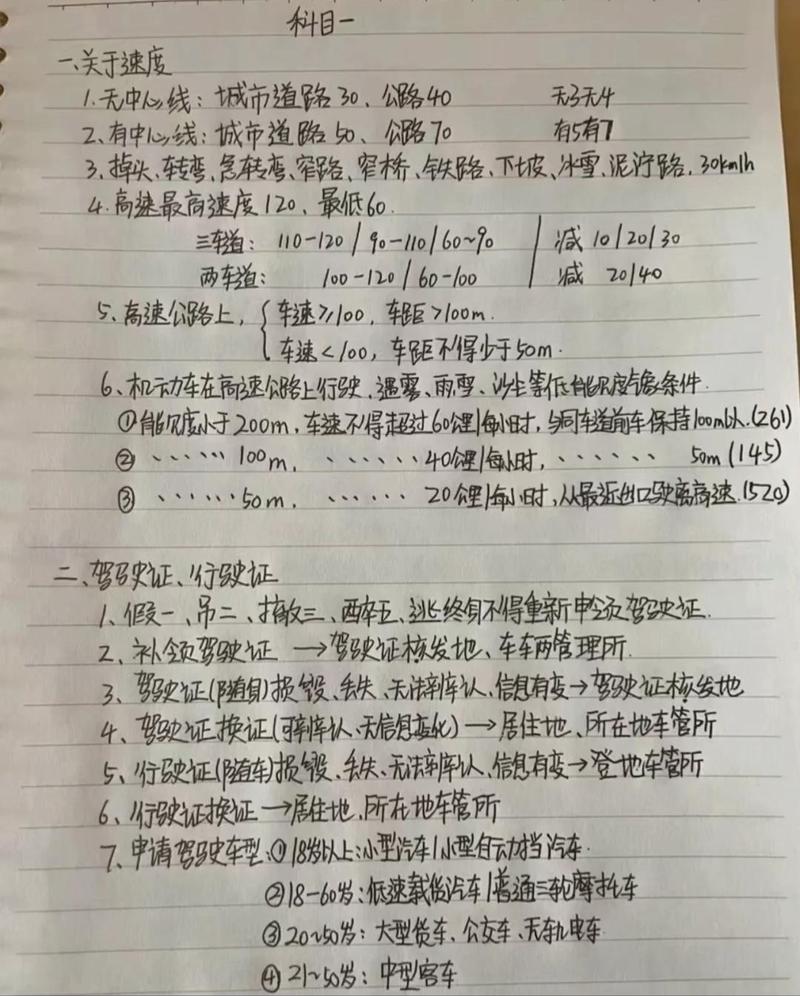 科目一
一、关于速度
1.无中心线：城市道路30、公路40 无3无4
2.有中心线：城市道路50、公路70 有5有7
3.掉头、转弯、急转弯、窄路、窄桥、铁路、下坡、冰雪、泥泞路，30km/h
4.高速最高速度120，最低60.
三车道：110-120/90-110/60~90 减10/20/30
两车道：100-120/60-100 减 20/40
5、高速公路上，车速≥100，车距>100m.
车速<100，车距不得少于50m.
6、机动车在高速公路上行驶，遇雾、雨、雪、沙尘等低能见度气象条件.
①能见度小于200m，车速不得超过60公里/每小时，与同车道前车保持100m以上.(261)
② ······ 100m， ······40公里/每小时，······ 50m(145)
③ ······50m， ······ 20公里/每小时，从最近出口驶离高速.(520)
二、驾驶证、行驶证
1、假一、吊二、撤三、醉五、逃终身不得重新申领驾驶证.
2、补领驾驶证→驾驶证核发地、车车两管理所.
3、驾驶证(随身)损毁、丢失、无法辨认、信息有变→驾驶证核发地
4、驾驶证换证(可辨认、无信息变化)→居住地、所在地车管所
5、行驶证(随车)损毁、丢失、无法辨认、信息有变→登地车管所
6、行驶证换证→居住地、所在地车管所
7、申请驾驶车型：①18岁以上：小型汽车/小型自动挡汽车.
②18-60岁：低速载货汽车/普通三轮摩托车
③20~50岁：大型货车、公交车、无轨电车
④21~50岁：中型客车